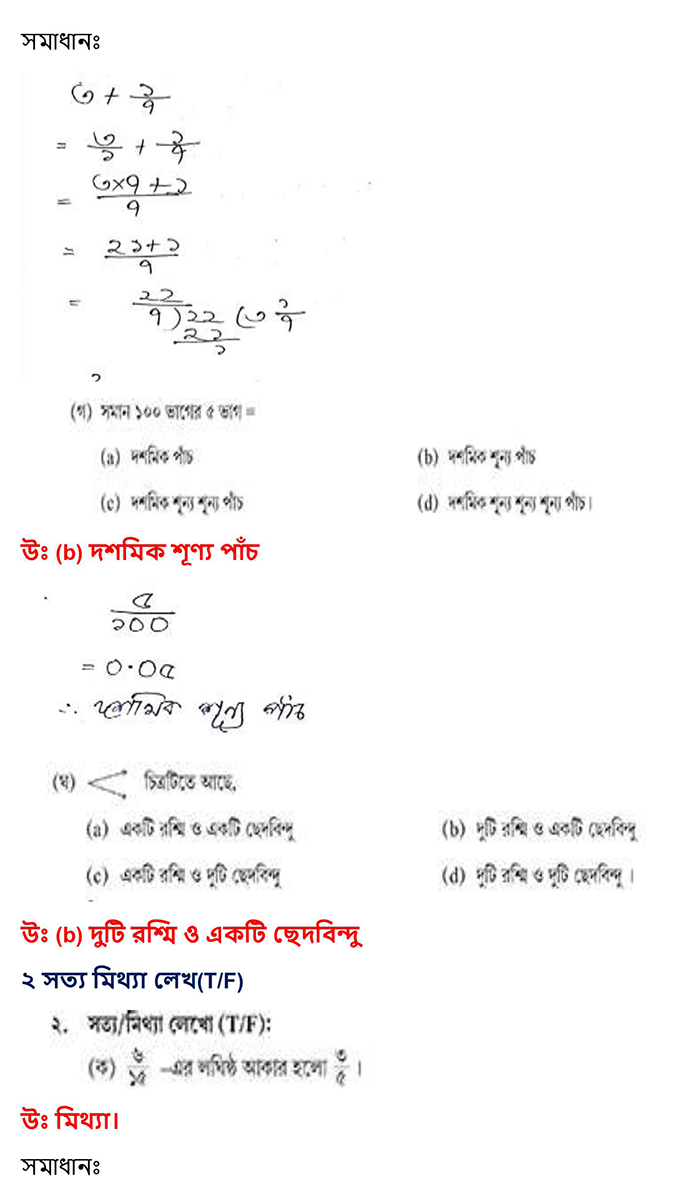 সমাধানঃ
৩ + ১/৭
= ৩/১ + ১/৭
= (৩×৭+১)/৭
= (২১+১)/৭
= ২২/৭) ২২ (৩ ১/৭
২১
১
(গ) সমান ১০০ ভাগের ৫ ভাগ =
(a) দশমিক পাঁচ (b) দশমিক শূন্য পাঁচ
(c) দশমিক শূন্য শূন্য পাঁচ (d) দশমিক শূন্য শূন্য শূন্য পাঁচ।
উঃ (b) দশমিক শূণ্য পাঁচ
৫/১০০
= ০·০৫
∴ দশমিক শূন্য পাঁচ
(ঘ) চিত্রটিতে আছে,
(a) একটি রশ্মি ও একটি ছেদবিন্দু (b) দুটি রশ্মি ও একটি ছেদবিন্দু
(c) একটি রশ্মি ও দুটি ছেদবিন্দু (d) দুটি রশ্মি ও দুটি ছেদবিন্দু।
উঃ (b) দুটি রশ্মি ও একটি ছেদবিন্দু
২ সত্য মিথ্যা লেখ(T/F)
২. সত্য/মিথ্যা লেখো (T/F):
(ক) ৬/১৫ –এর লঘিষ্ঠ আকার হলো ৩/৫।
উঃ মিথ্যা।
সমাধানঃ